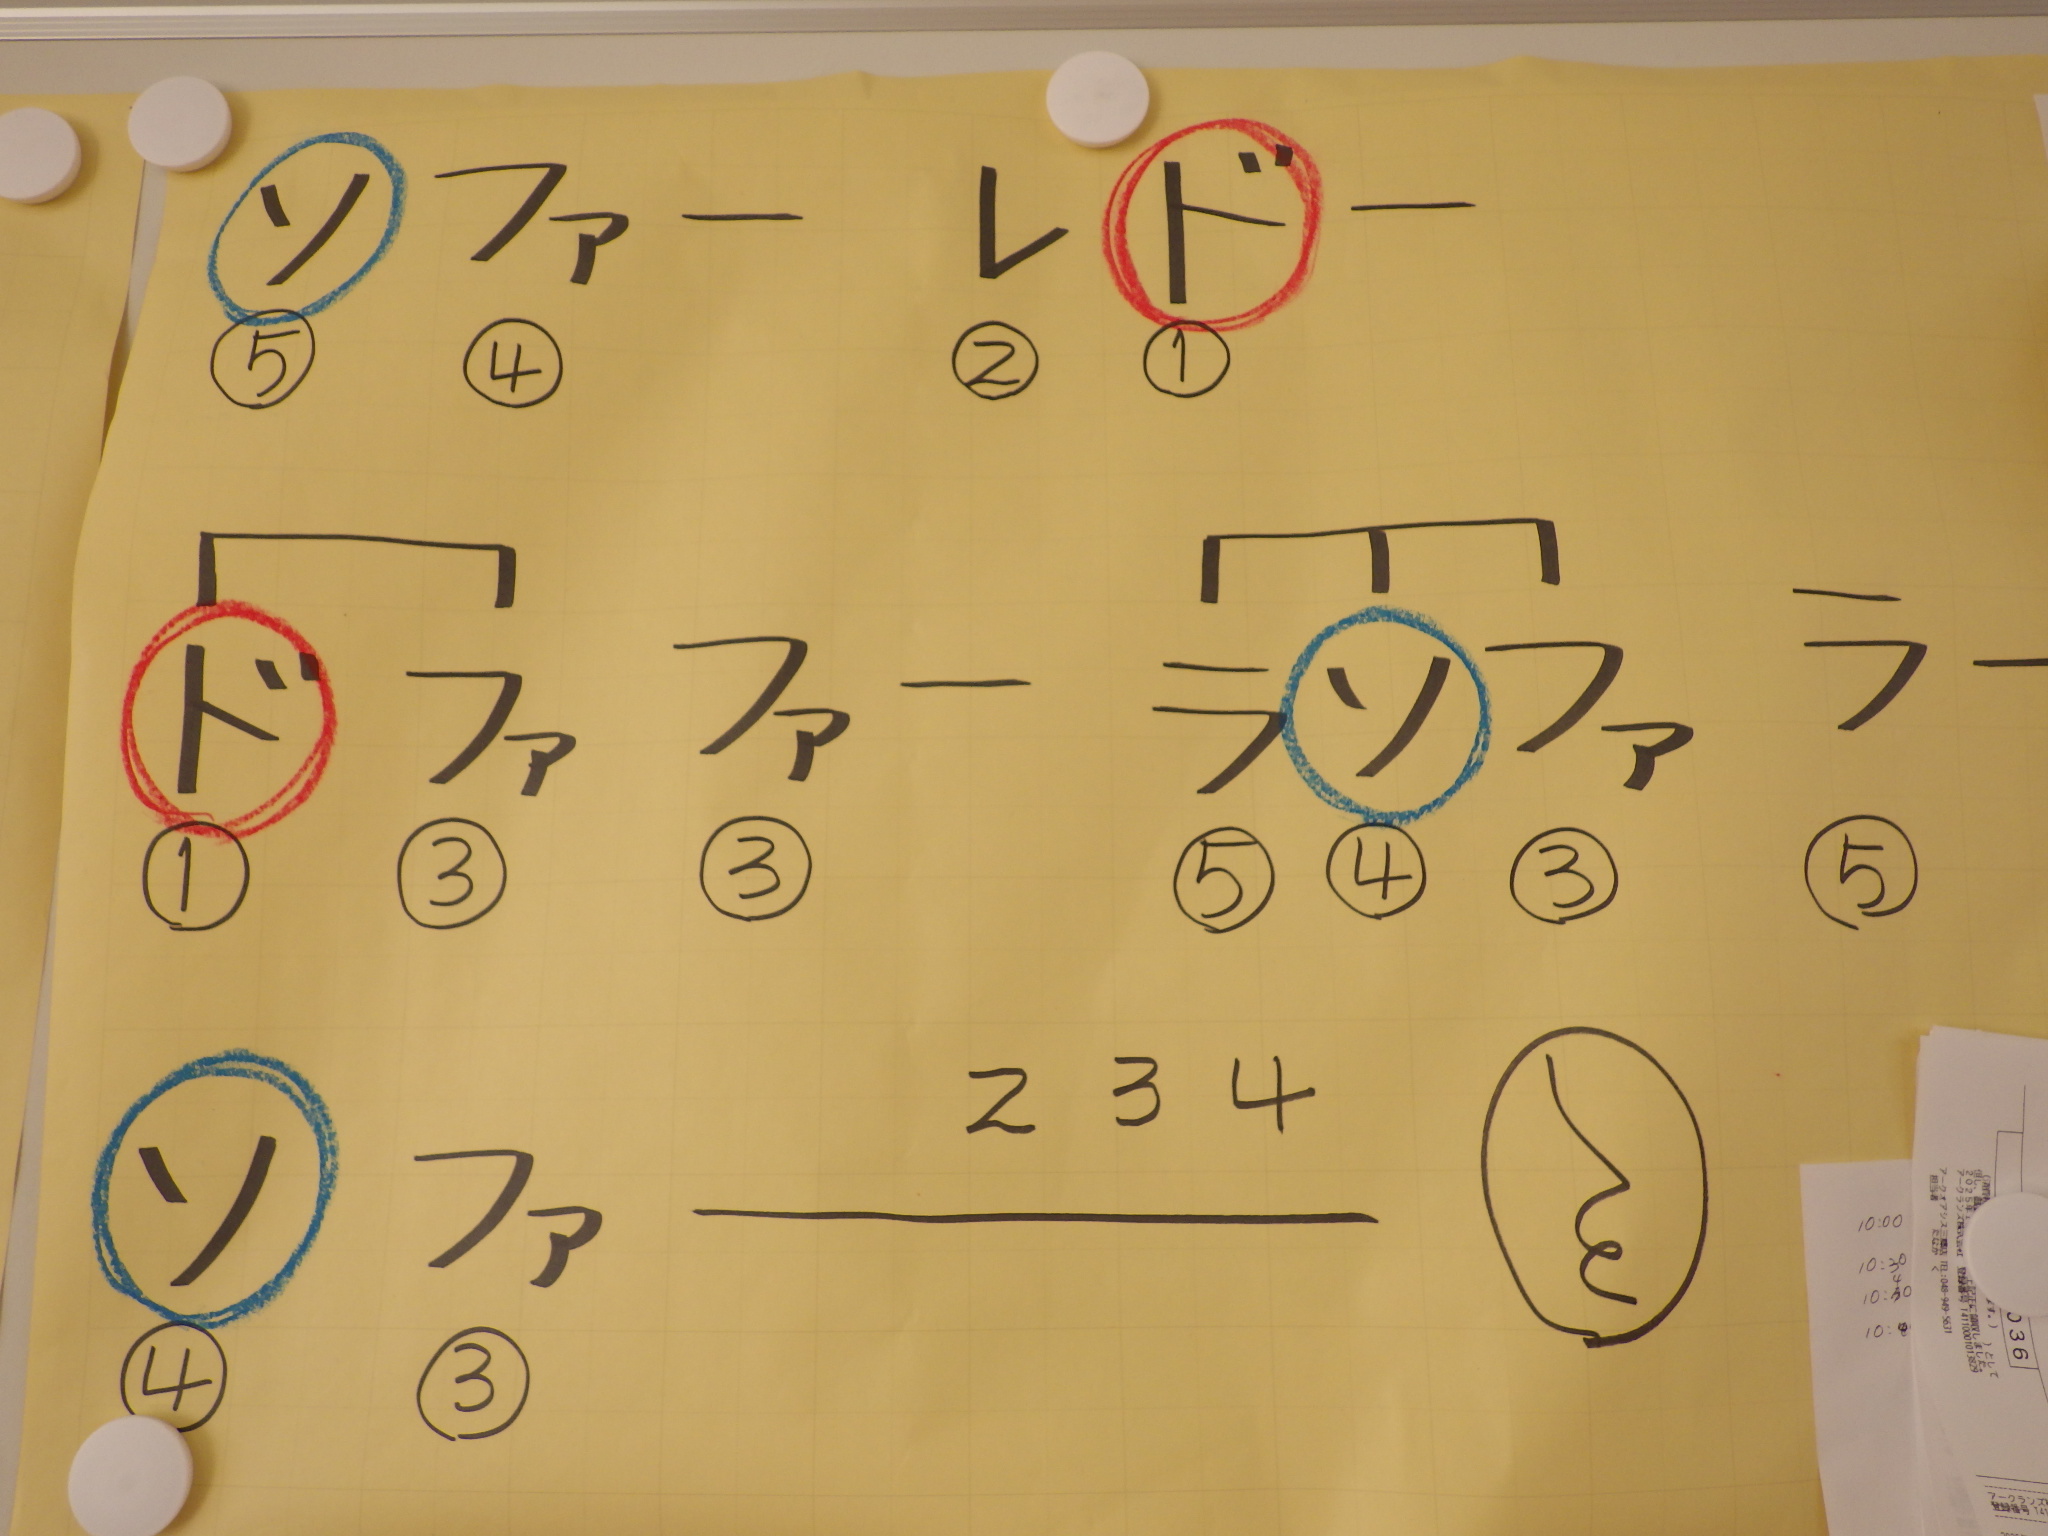 ソ ファ ー レ ド ー
⑤ ④ ② ①
ド ファ ファ ー ラ ソ ファ ラ ー
① ③ ③ ⑤ ④ ③ ⑤
2 3 4
ソ ファ ー
④ ③
10:00
10:30
036